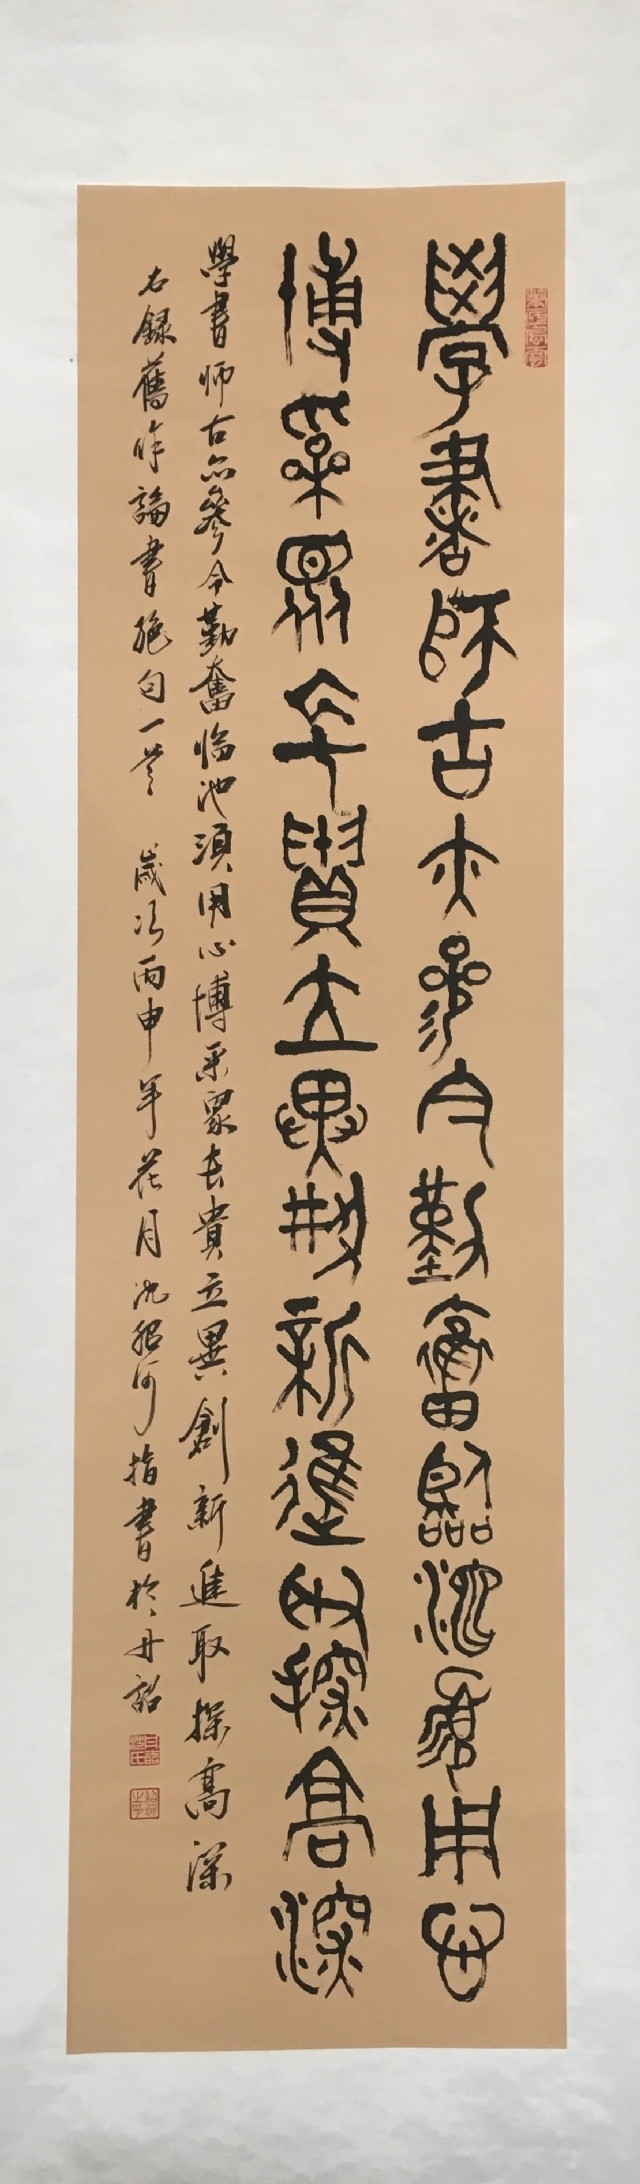 學書師古亦參今勤奮臨池須用心
博采眾長貴立異創新進取探高深
學書师古亦參今勤奮临池須用心博采眾長貴立異創新進取探高深
右録舊作論書絶句一首 歲次丙申年花月沈紹何指書於丹詔